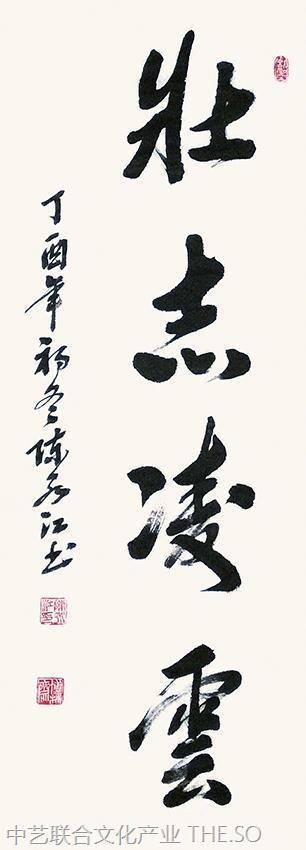 壯志凌雲
丁酉年初冬陈永江书
中艺联合文化产业 THE.SO